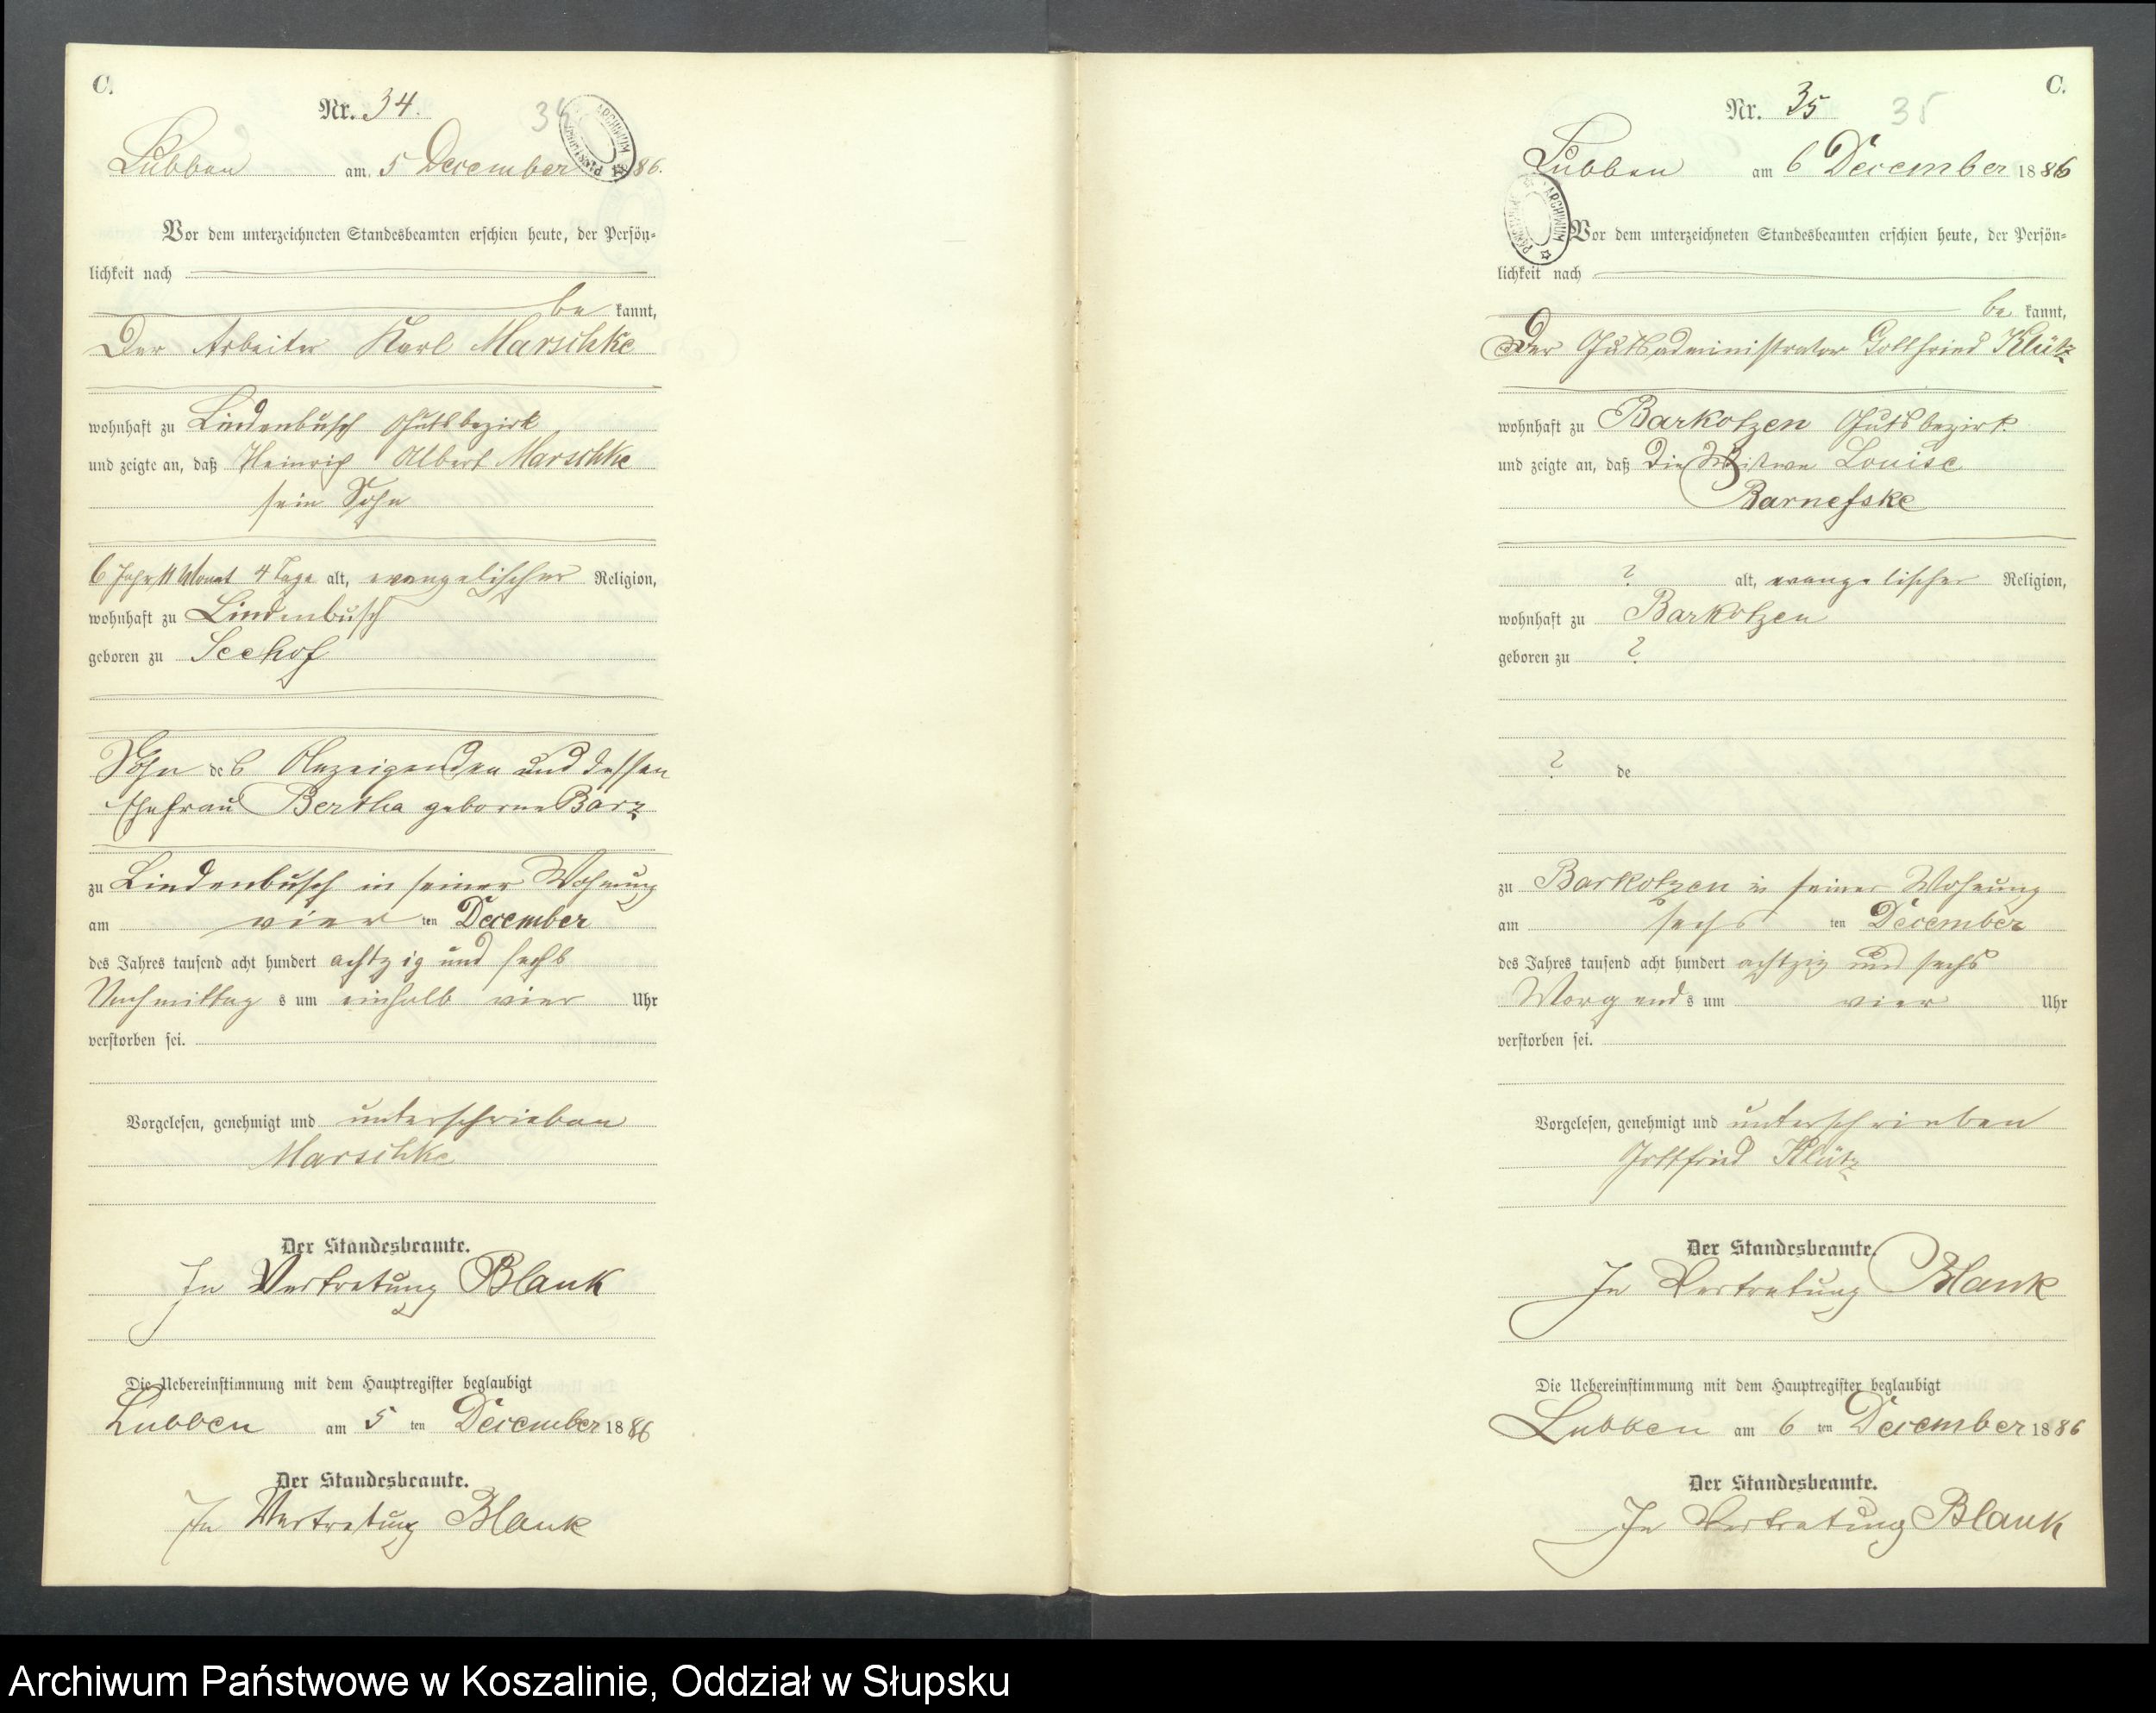 C.
Nr. 34.
34
ARCHIWUM
Lübben am 5 December 1886.
Vor dem unterzeichneten Standesbeamten erschien heute, der Persön-
lichkeit nach
be kannt,
Der Arbeiter Karl Marschke
wohnhaft zu Lindenbusch Gutsbezirk
und zeigte an, daß Heinrich Albert Marschke
sein Sohn
6 Jahr 11 Monat 4 Tage alt, evangelischer Religion,
wohnhaft zu Lindenbusch
geboren zu Seehof
Sohn des Anzeigenden und dessen
Ehefrau Bertha geborne Barz
zu Lindenbusch in seiner Wohnung
am vier ten December
des Jahres tausend acht hundert achtzig und sechs
Nachmittag s um einhalb vier Uhr
verstorben sei.
Vorgelesen, genehmigt und unterschrieben
Marschke
Der Standesbeamte.
In Vertretung Blank
Die Uebereinstimmung mit dem Hauptregister beglaubigt
Lubben am 5 ten December 1886
Der Standesbeamte.
In Vertretung Blank
C.
Nr. 35
35
Lübben am 6 December 1886
ARCHIWUM
Vor dem unterzeichneten Standesbeamten erschien heute, der Persön-
lichkeit nach
be kannt,
Der Gutsadministrator Gottfried Klütz
wohnhaft zu Barkotzen Gutsbezirk
und zeigte an, daß die Witwe Louise
Barnefske
? alt, evangelischer Religion,
wohnhaft zu Barkotzen
geboren zu ?
? de
zu Barkotzen in seiner Wohnung
am sechs ten December
des Jahres tausend acht hundert achtzig und sechs
Morgend s um vier Uhr
verstorben sei.
Vorgelesen, genehmigt und unterschrieben
Gottfried Klütz
Der Standesbeamte.
In Vertretung Blank
Die Uebereinstimmung mit dem Hauptregister beglaubigt
Lubben am 6 ten December 1886
Der Standesbeamte.
In Vertretung Blank
Archiwum Państwowe w Koszalinie, Oddział w Słupsku